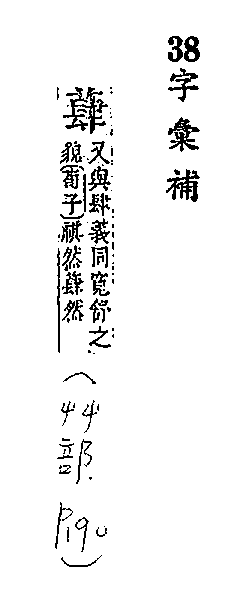 38字彙補
蕼
又與肆義同寬舒之
貌荀子祺然蕼然
(艸部.P190)